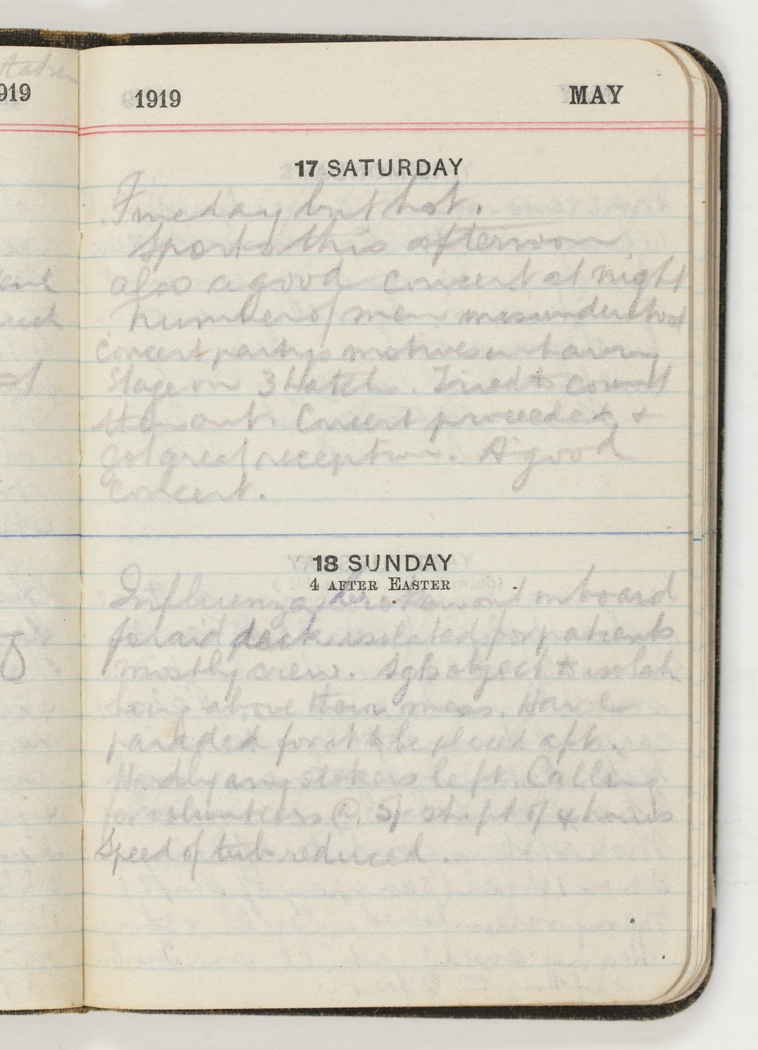 919
1919 MAY
17 SATURDAY
Fine day but hot.
Sports this afternoon
also a good concert at night
Number of men misunderstood
Concert partys motives in having
Stage on 3 Hatch. Tried to count
them out. Concert proceeded &
got great reception. A good
Concert.
18 SUNDAY
4 AFTER EASTER
Influenza broken out onboard
foraid deck isolated for patients
mostly crew. Sgts object to isolah
being above their mess. Have
paraded for it to be placed aft.
Hardly any stokers left. Calling
for volunteers @ 5/- shift of 4 hours
Speed of tub reduced.